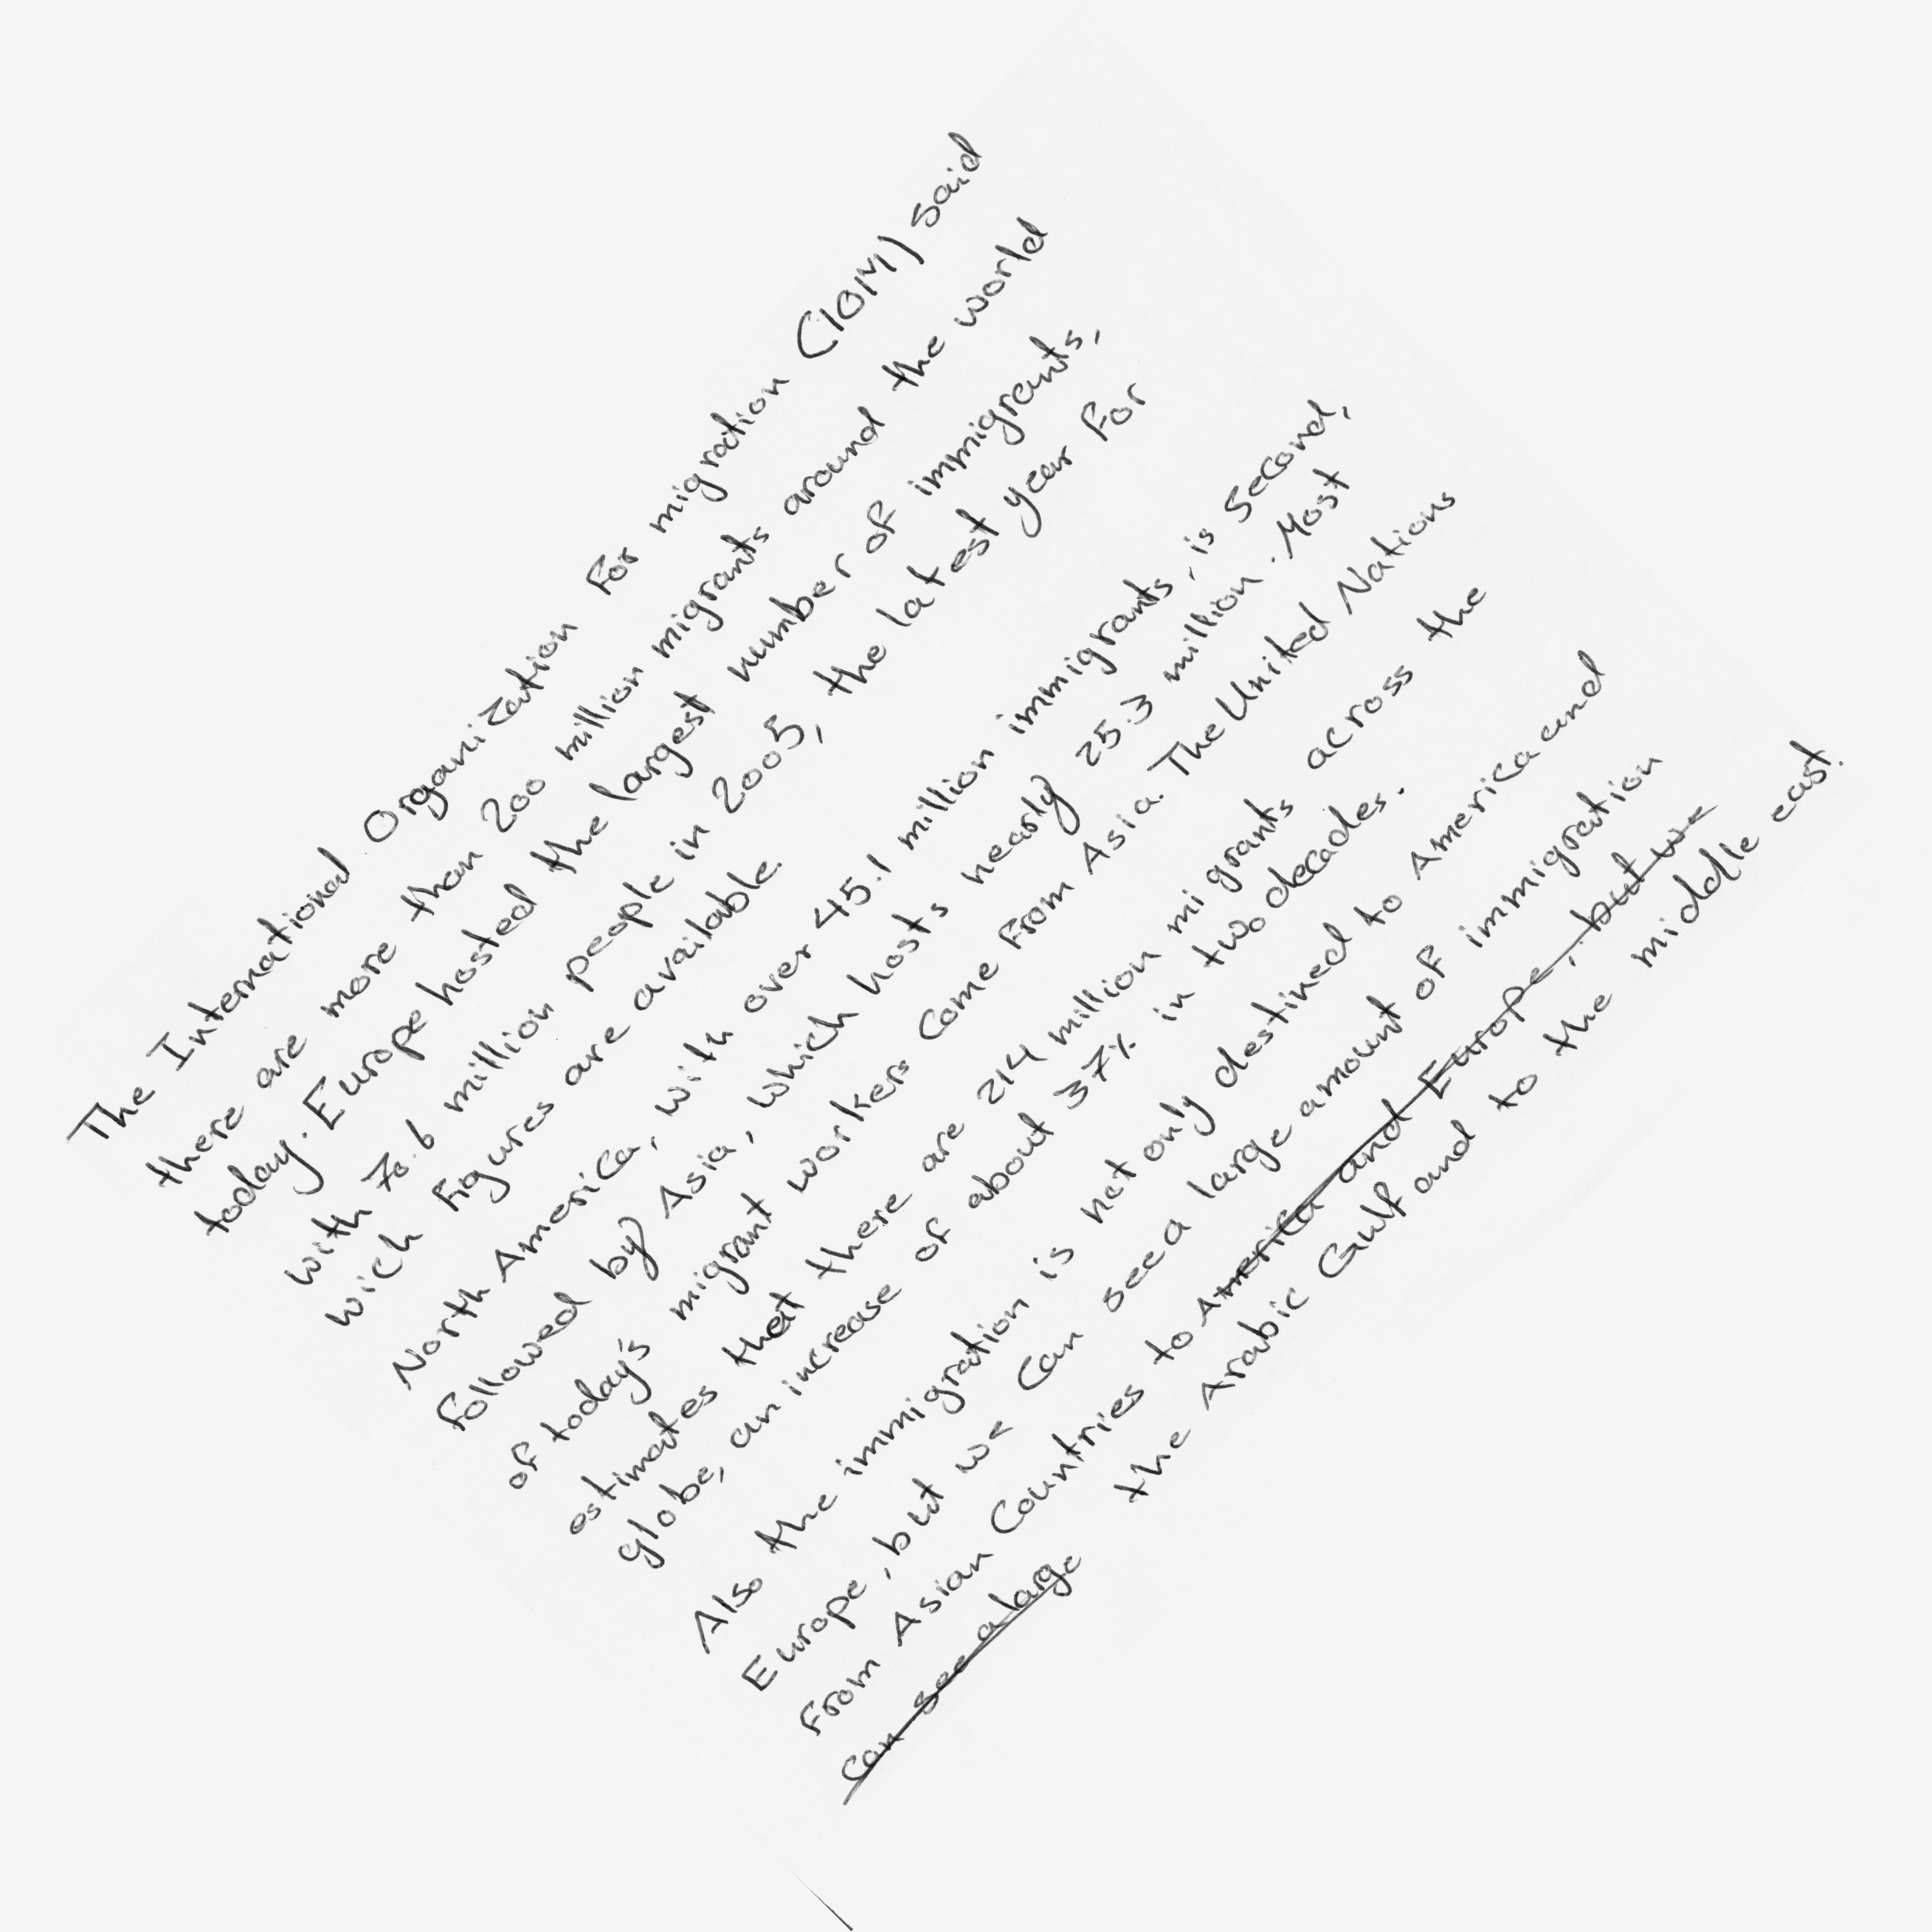 The International Organization For migration (IOM) said
there are more than 200 million migrants around the world
today. Europe hosted the largest number of immigrants,
with 70.6 million people in 2005, the latest year For
wich Figures are available.
North America, with over 45.1 million immigrants, is second,
Followed by Asia, which hosts nearly 25.3 million. Most
of today's migrant workers come From Asia. The United Nations
estimates that there are 214 million migrants across the
globe, an increase of about 37% in two decades.
Also the immigration is not only destined to America and
Europe, but we can see a large amount of immigration
From Asian Countries to America and Europe, but we
can see a large the Arabic Gulf and to the middle east.